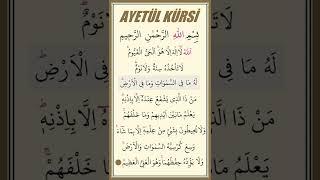 AYETÜL KÜRSİ
بِسْمِ اللّٰهِ الرَّحْمٰنِ الرَّحِيمِ
اَللّٰهُ لَٓا اِلٰهَ اِلَّا هُوَ الْحَيُّ الْقَيُّومُ
لَا تَأْخُذُهُ سِنَةٌ وَلَا نَوْمٌ
لَهُ مَا فِي السَّمٰوَاتِ وَمَا فِي الْاَرْضِ
مَنْ ذَا الَّذِي يَشْفَعُ عِنْدَهُٓ اِلَّا بِاِذْنِهِ
يَعْلَمُ مَا بَيْنَ اَيْدِيهِمْ وَمَا خَلْفَهُمْ
وَلَا يُحِيطُونَ بِشَيْءٍ مِنْ عِلْمِهِٓ اِلَّا بِمَا شَٓاءَ
وَسِعَ كُرْسِيُّهُ السَّمٰوَاتِ وَالْاَرْضَ
وَلَا يَؤُ۫دُهُ حِفْظُهُمَا وَهُوَ الْعَلِيُّ الْعَظِيمُ